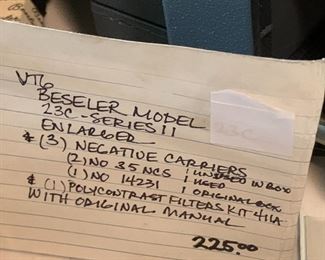 VTG
BESELER MODEL
23C-SERIES II
23C
ENLARGER
* (3) NEGATIVE CARRIERS
(2) NO 35 NCS 1 UNUSED IN BOX 1 USED
(1) NO 14231 1 ORIGINAL BOX
* (1) POLYCONTRAST FILTERS KIT 411A
WITH ORIGINAL MANUAL
225.00